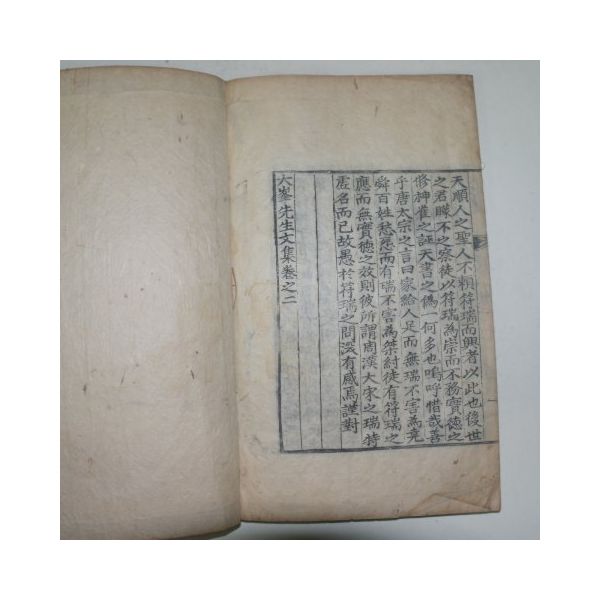 天順人之聖人不賴符瑞而興者以此也後世
之君瞢不之察徒以符瑞為崇而不務實德之
修神雀之誣天書之偽一何多也嗚呼惜哉善
乎唐太宗之言曰家給人足而無瑞不害為堯
舜百姓愁怨而有瑞不害為桀紂徒有符瑞之
應而無實德之效則彼所謂周漢大宋之瑞特
虛名而已故愚於符瑞之問深有感焉謹對
大峯先生文集卷之二